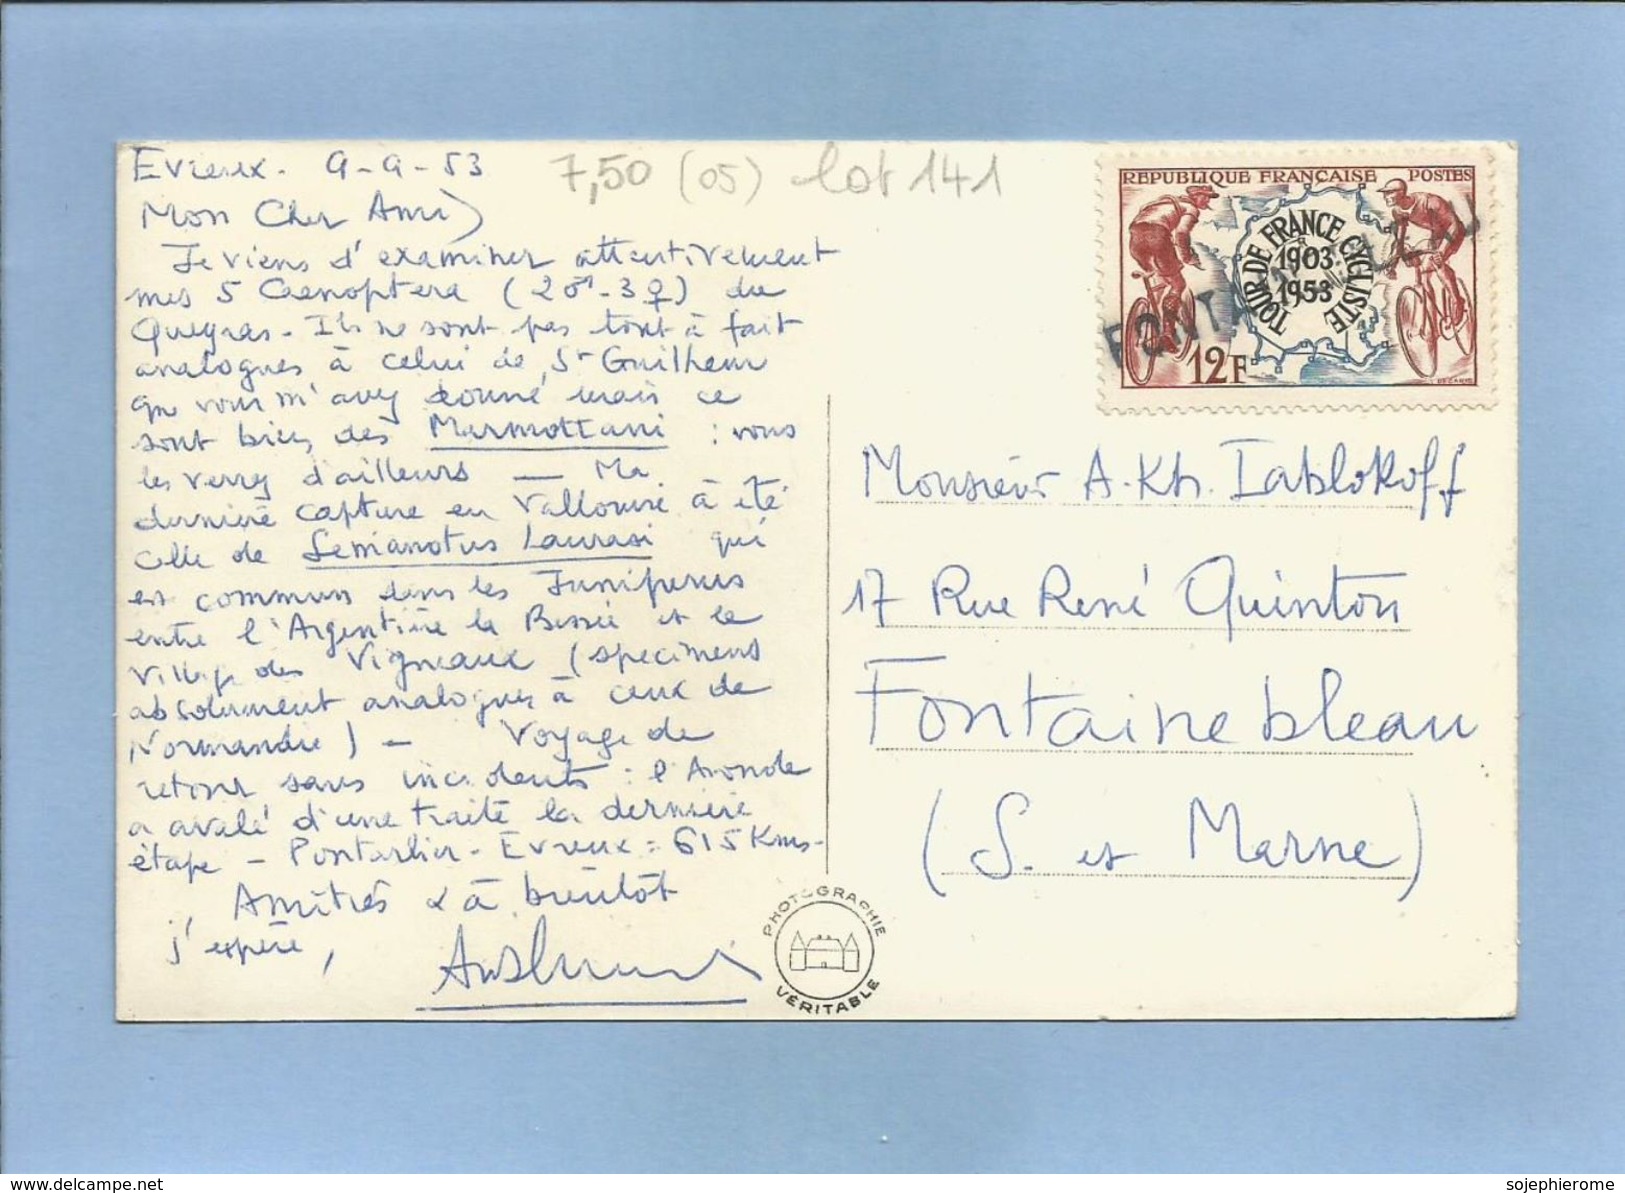 Evreux. 9-9-53
7,50 (05) lot 141
Mon Cher Ami)
Je viens d'examiner attentivement
mes 5 Caenoptera (2♂-3♀) du
Queyras - Ils ne sont pas tout à fait
analogues à celui de St Guilhem
que vous m'avez donné mais ce
sont bien des Marmottani : vous
les verrez d'ailleurs — Ma
dernière capture en Vallouise à été
celle de Semanotus Laurasi qui
est commun dans les Juniperus
entre l'Argentière la Bessée et le
village des Vigneaux (specimens
absolument analogues à ceux de
Normandie) — Voyage de
retour sans incidents : l'Aronde
a avalé d'une traite la dernière
étape - Pontarlier - Evreux = 615 Kms-
Amitiés & à bientôt
j'espère,
REPUBLIQUE FRANÇAISE POSTES
TOUR DE FRANCE CYCLISTE
1903
1953
12F
DECARIS
FONTAINEBLEAU
Monsieur A. Kh. Iablokoff
17 Rue René Quinton
Fontainebleau
(S. et Marne)
PHOTOGRAPHIE
VÉRITABLE
www.delcampe.net
sojephierome